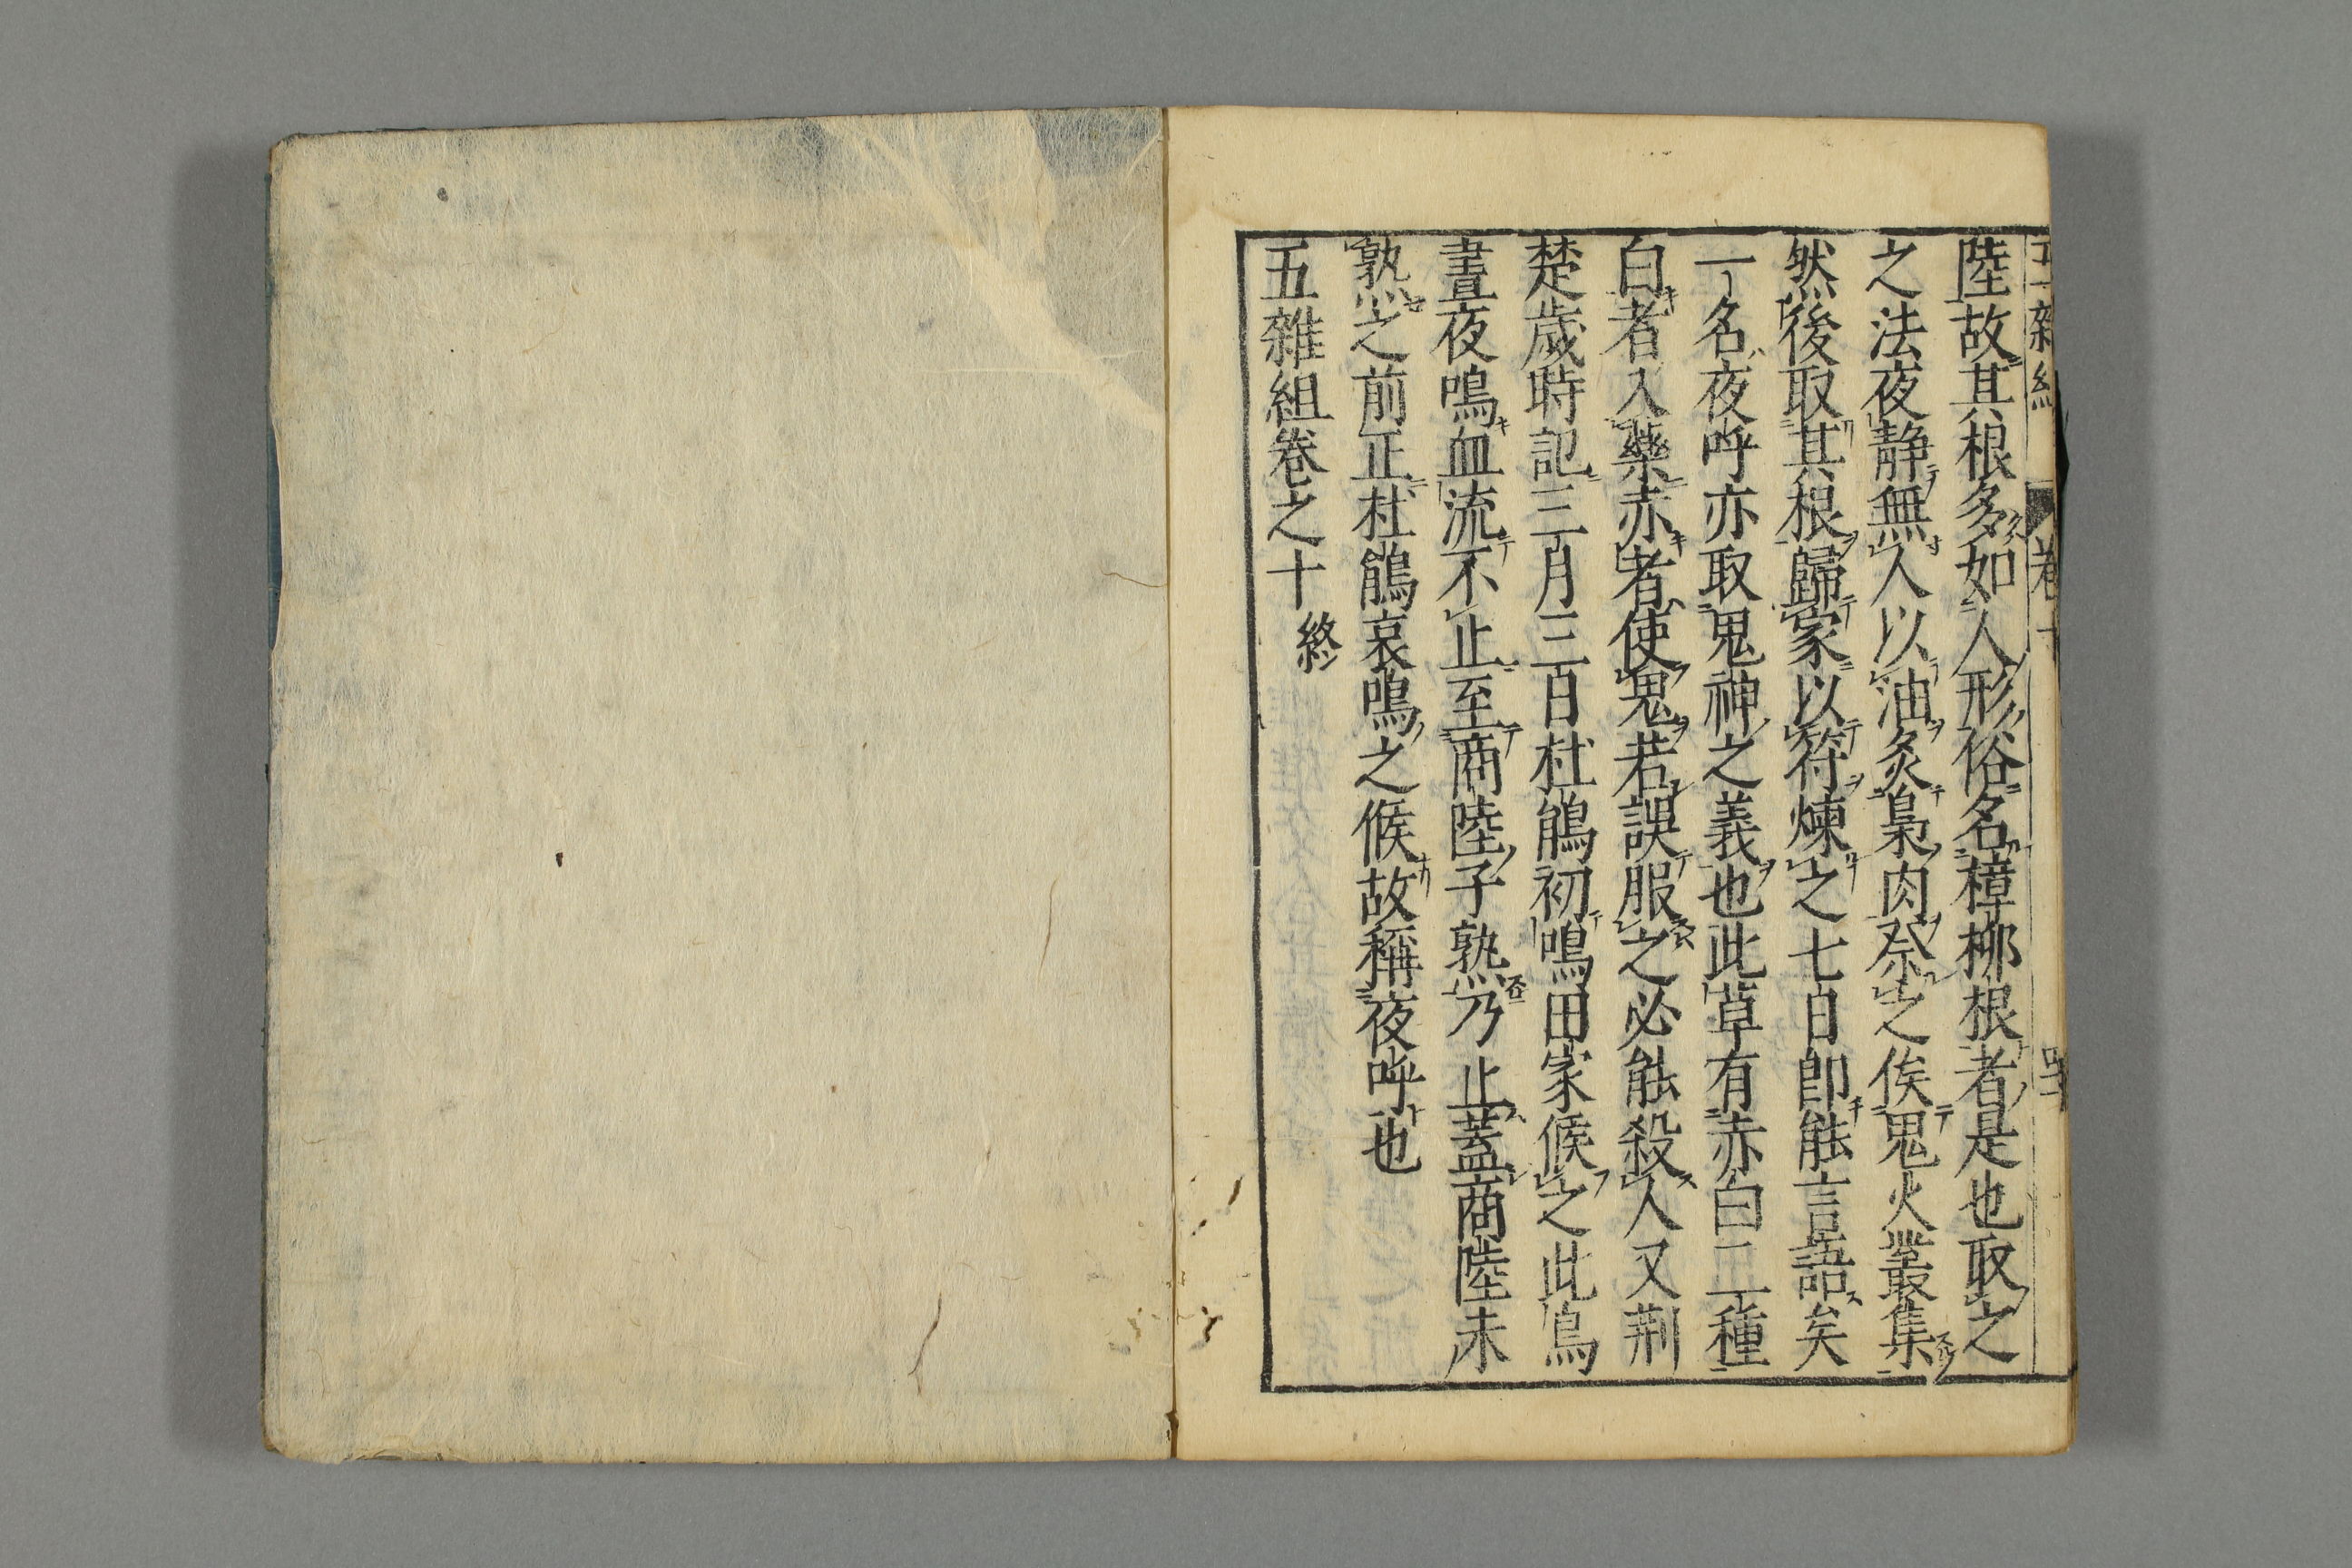 五雜組 卷十
陸故其根多如人形俗名樟柳根者是也取之
之法夜静無人以油炙梟肉祭之俟鬼火叢集
然後取其根歸家以符煉之七日即能言語矣
一名夜呼亦取鬼神之義也此草有赤白二種
白者入藥赤者使鬼若誤服之必能殺人又荊
楚歲時記三月三日杜鵑初鳴田家候之此鳥
晝夜鳴血流不止至商陸子熟乃止蓋商陸未
熟之前正杜鵑哀鳴之候故稱夜呼也
五雜組卷之十 終